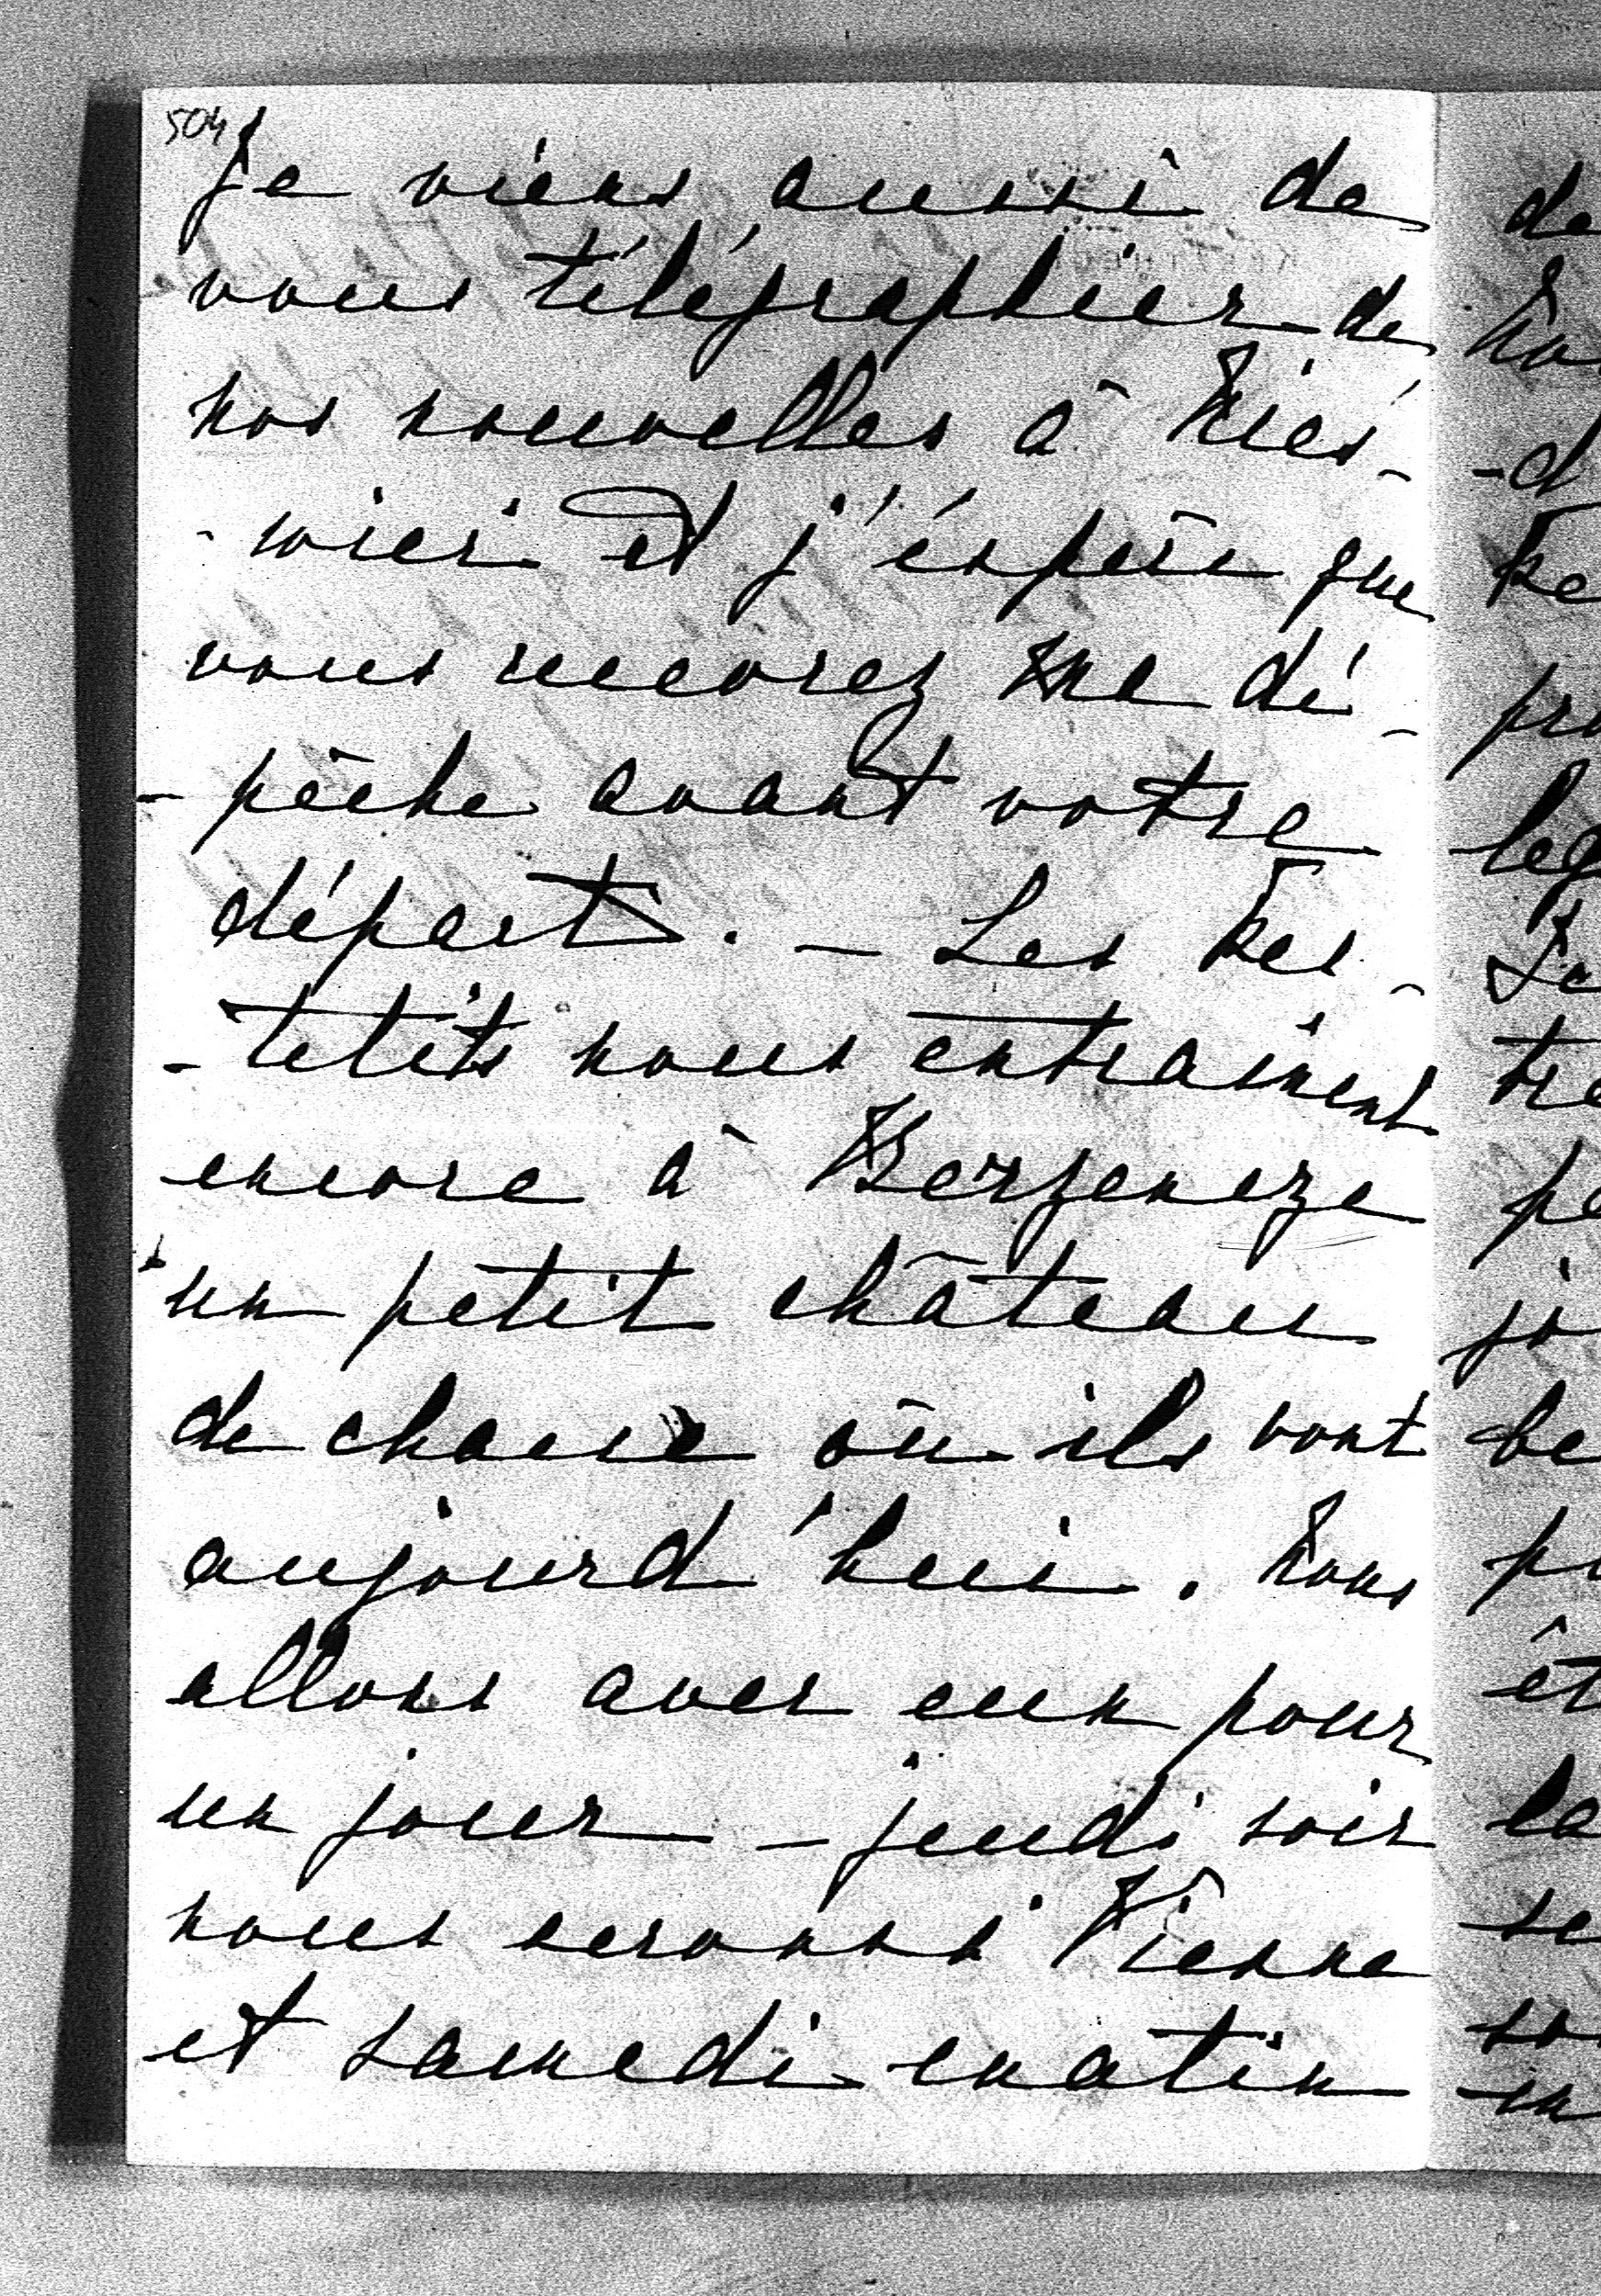 504
Je viens aussi de
vous télégraphier de
nos nouvelles à Niés-
-wiez et j'éspère que
vous recevrez ma dé-
-pêche avant votre
départ. - Les Fes-
-tetits nous entrainent
encore à Berzencze
un petit château
de chasse où ils vont
aujourd'hui. Nous
allons avec eux pour
un jour - jeudi soir
nous serons à Vienne
et samedi matin